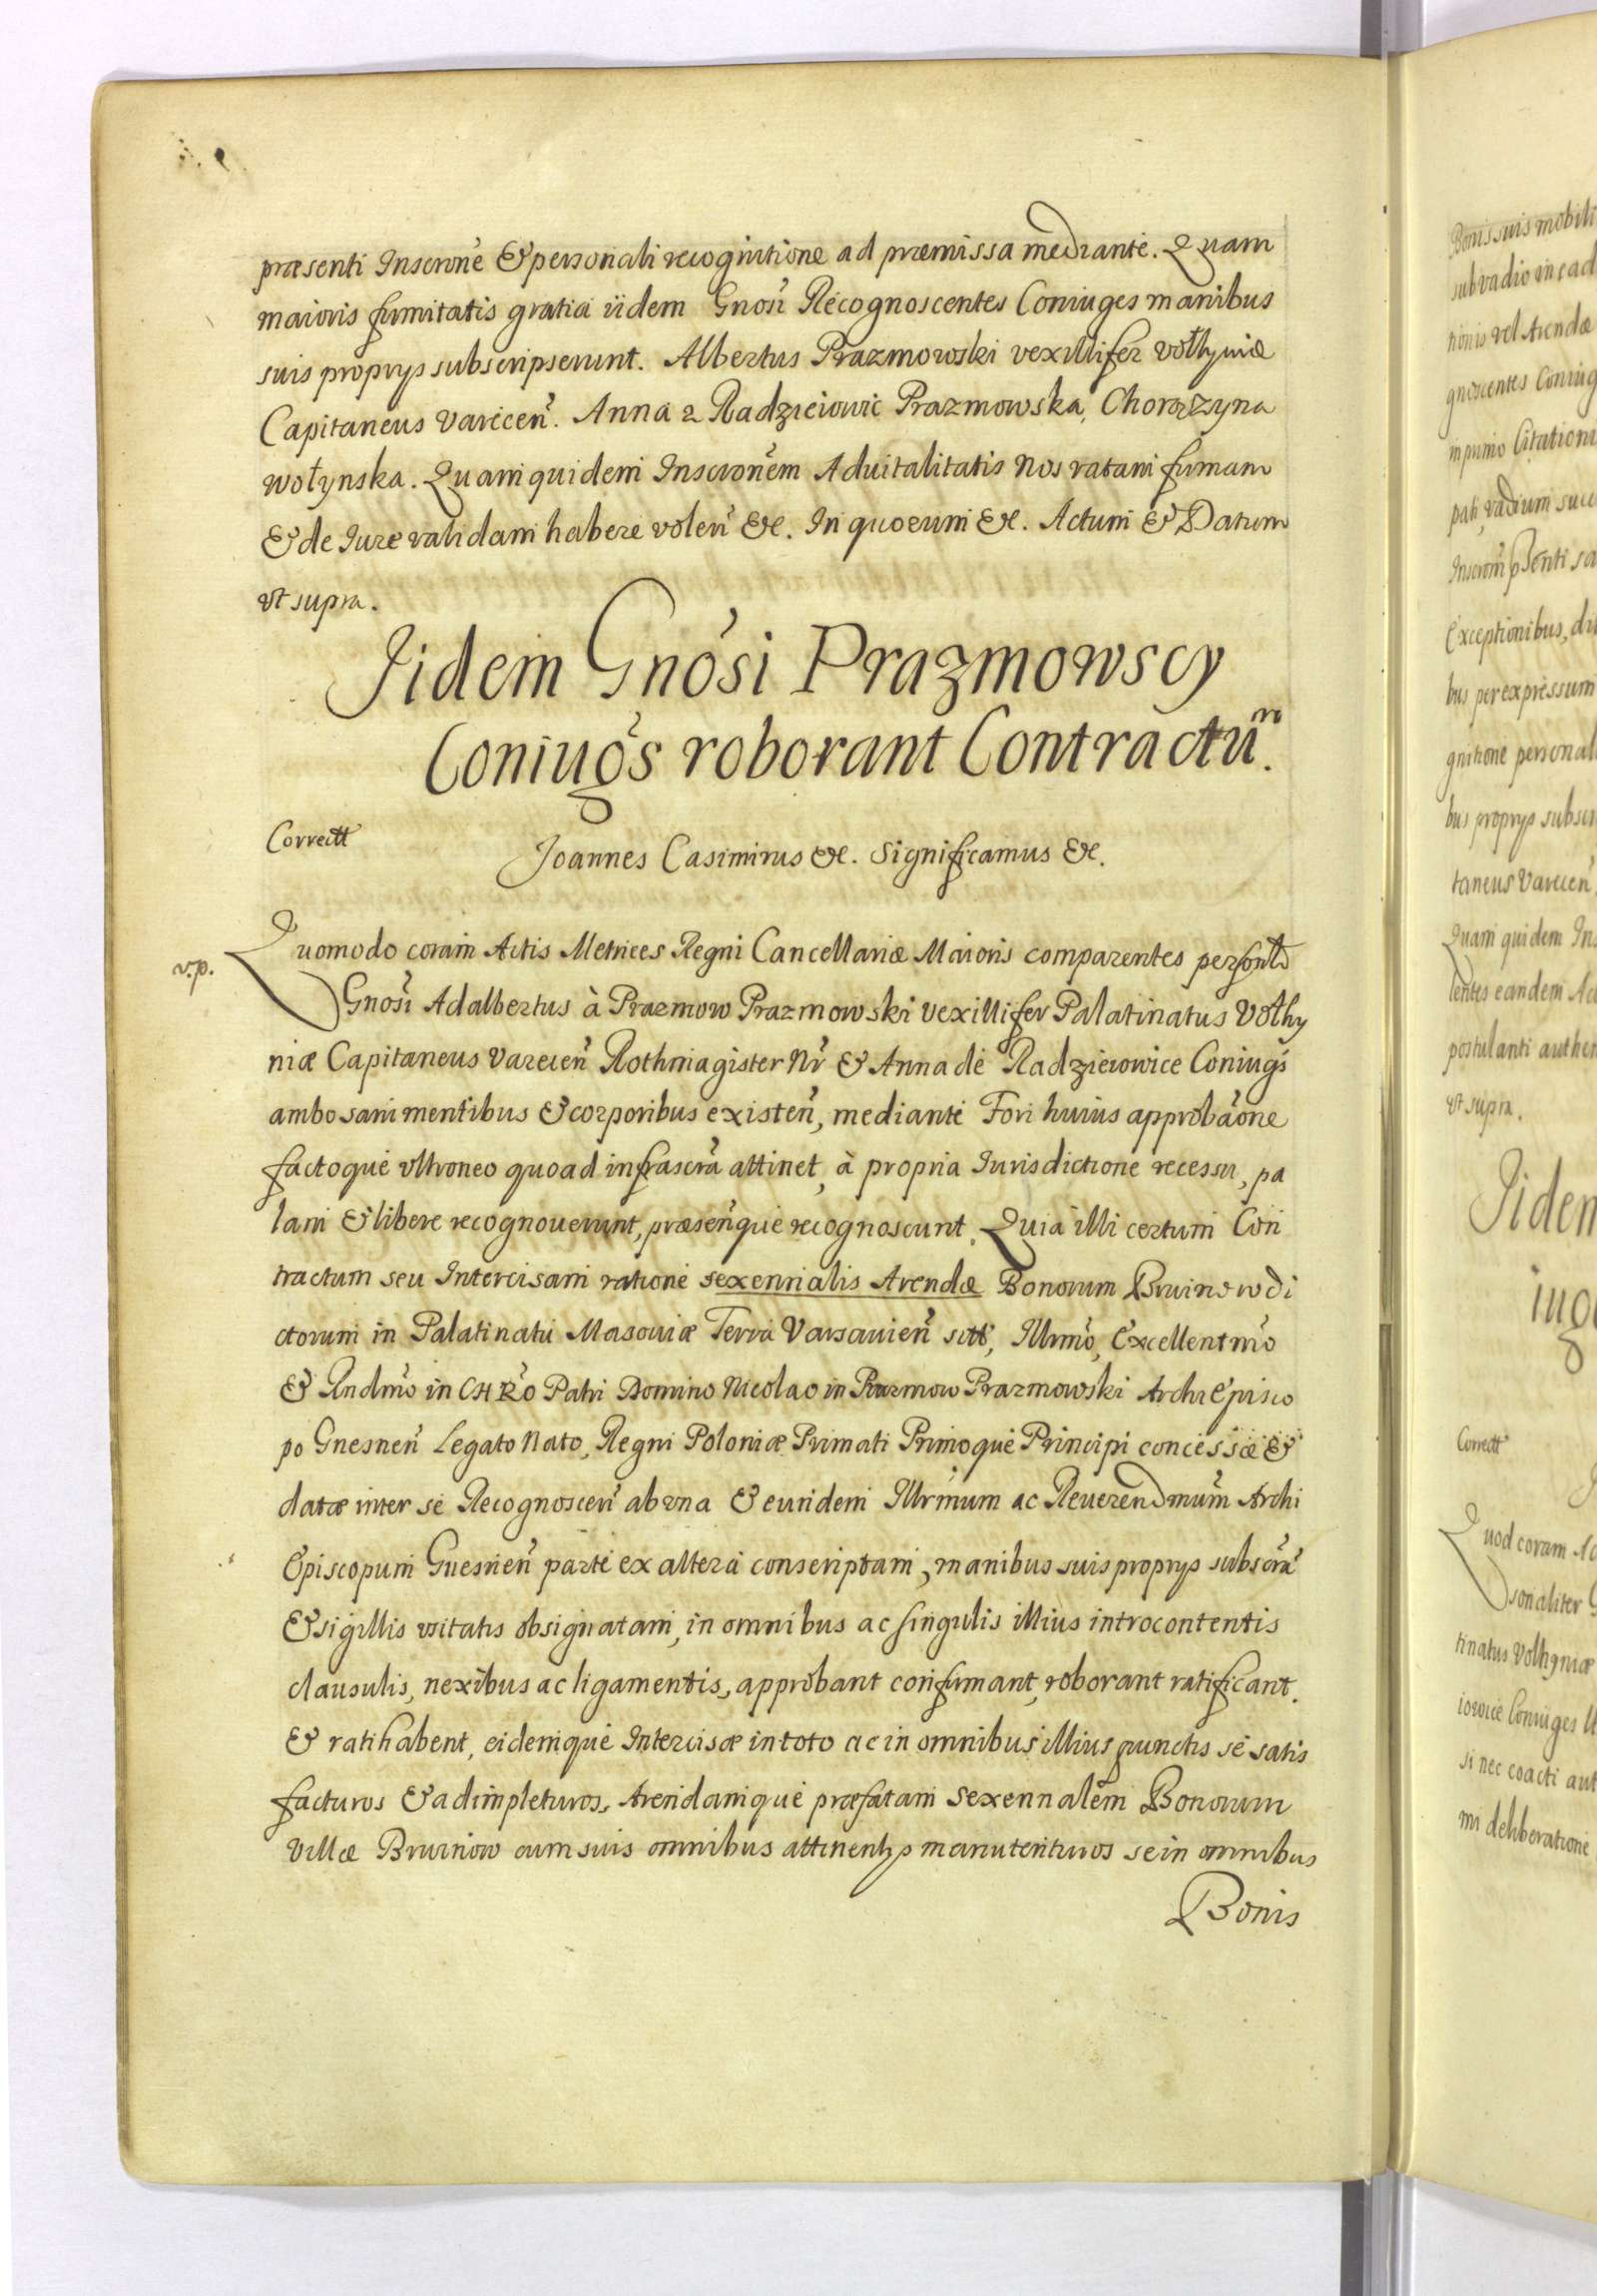 præsenti Inscrone̅ & personali recognitione ad præmissa mediante. Quam
maioris firmitatis gratia iidem Gnosi Recognoscentes Coniuges manibus
suis proprys subscripserunt. Albertus Prazmowski vexillifer volhyniæ
Capitaneus Varecen̅. Anna z Radzieiowic Prazmowska, Chorązyna
wołynska. Quam quidem Inscrone̅m Aduitalitatis Nos ratam firmam
& de Iure validam habere volen̅ &c. In quorum &c. Actum & Datum
vt supra.
Jidem Gnosi Prazmowscy
Coniugs roborant Contractu̅m.
Correctt
Joannes Casimirus &c. Significamus &c.
v.p.
Quomodo coram Actis Metrices Regni Cancellariæ Maioris comparentes personlr
Gnosi Adalbertus à Prazmow Prazmowski vexillifer Palatinatus Volhy
niæ Capitaneus Varecen̅ Rothmagister Nr̅ & Anna de Radzieiowice Coniugs
ambo sani mentibus & corporibus existen̅, mediante Fori huius approba̅one
factoque vltroneo quoad infrascra̅ attinet, à propria Iurisdictione recessu, pa
lam & libere recognouerunt, præsen̅que recognoscunt. Quia illi certum Con
tractum seu Intercisam ratione sexennialis Arendæ Bonorum Brwinow di
ctorum in Palatinatu Masouiæ Terra Varsauien̅ sitt, Illrmo, Excellentmo
& Rndmo in CHRO Patri Domino Nicolao in Prazmow Prazmowski ArchiEpisco
po Gnesnen̅ Legato Nato, Regni Poloniæ Primati Primoque Principi concessæ &
datæ inter se Recognoscen̅ ab vna & eundem Illrmum ac Reuerendmum Archi
Episcopum Gnesnen̅ parte ex altera conscriptam, manibus suis proprys subscra̅
& sigillis vsitatis obsignatam, in omnibus ac singulis illius introcontentis
clausulis, nexibus ac ligamentis, approbant confirmant, roborant ratificant.
& ratihabent, eidemque Intercisæ in toto ac in omnibus illius punctis se satis
facturos & adimpleturos, Arendamque præfatam Sexennalem Bonorum
Villæ Brwinow cum suis omnibus attinentys manutenturos se in omnibus
Bonis